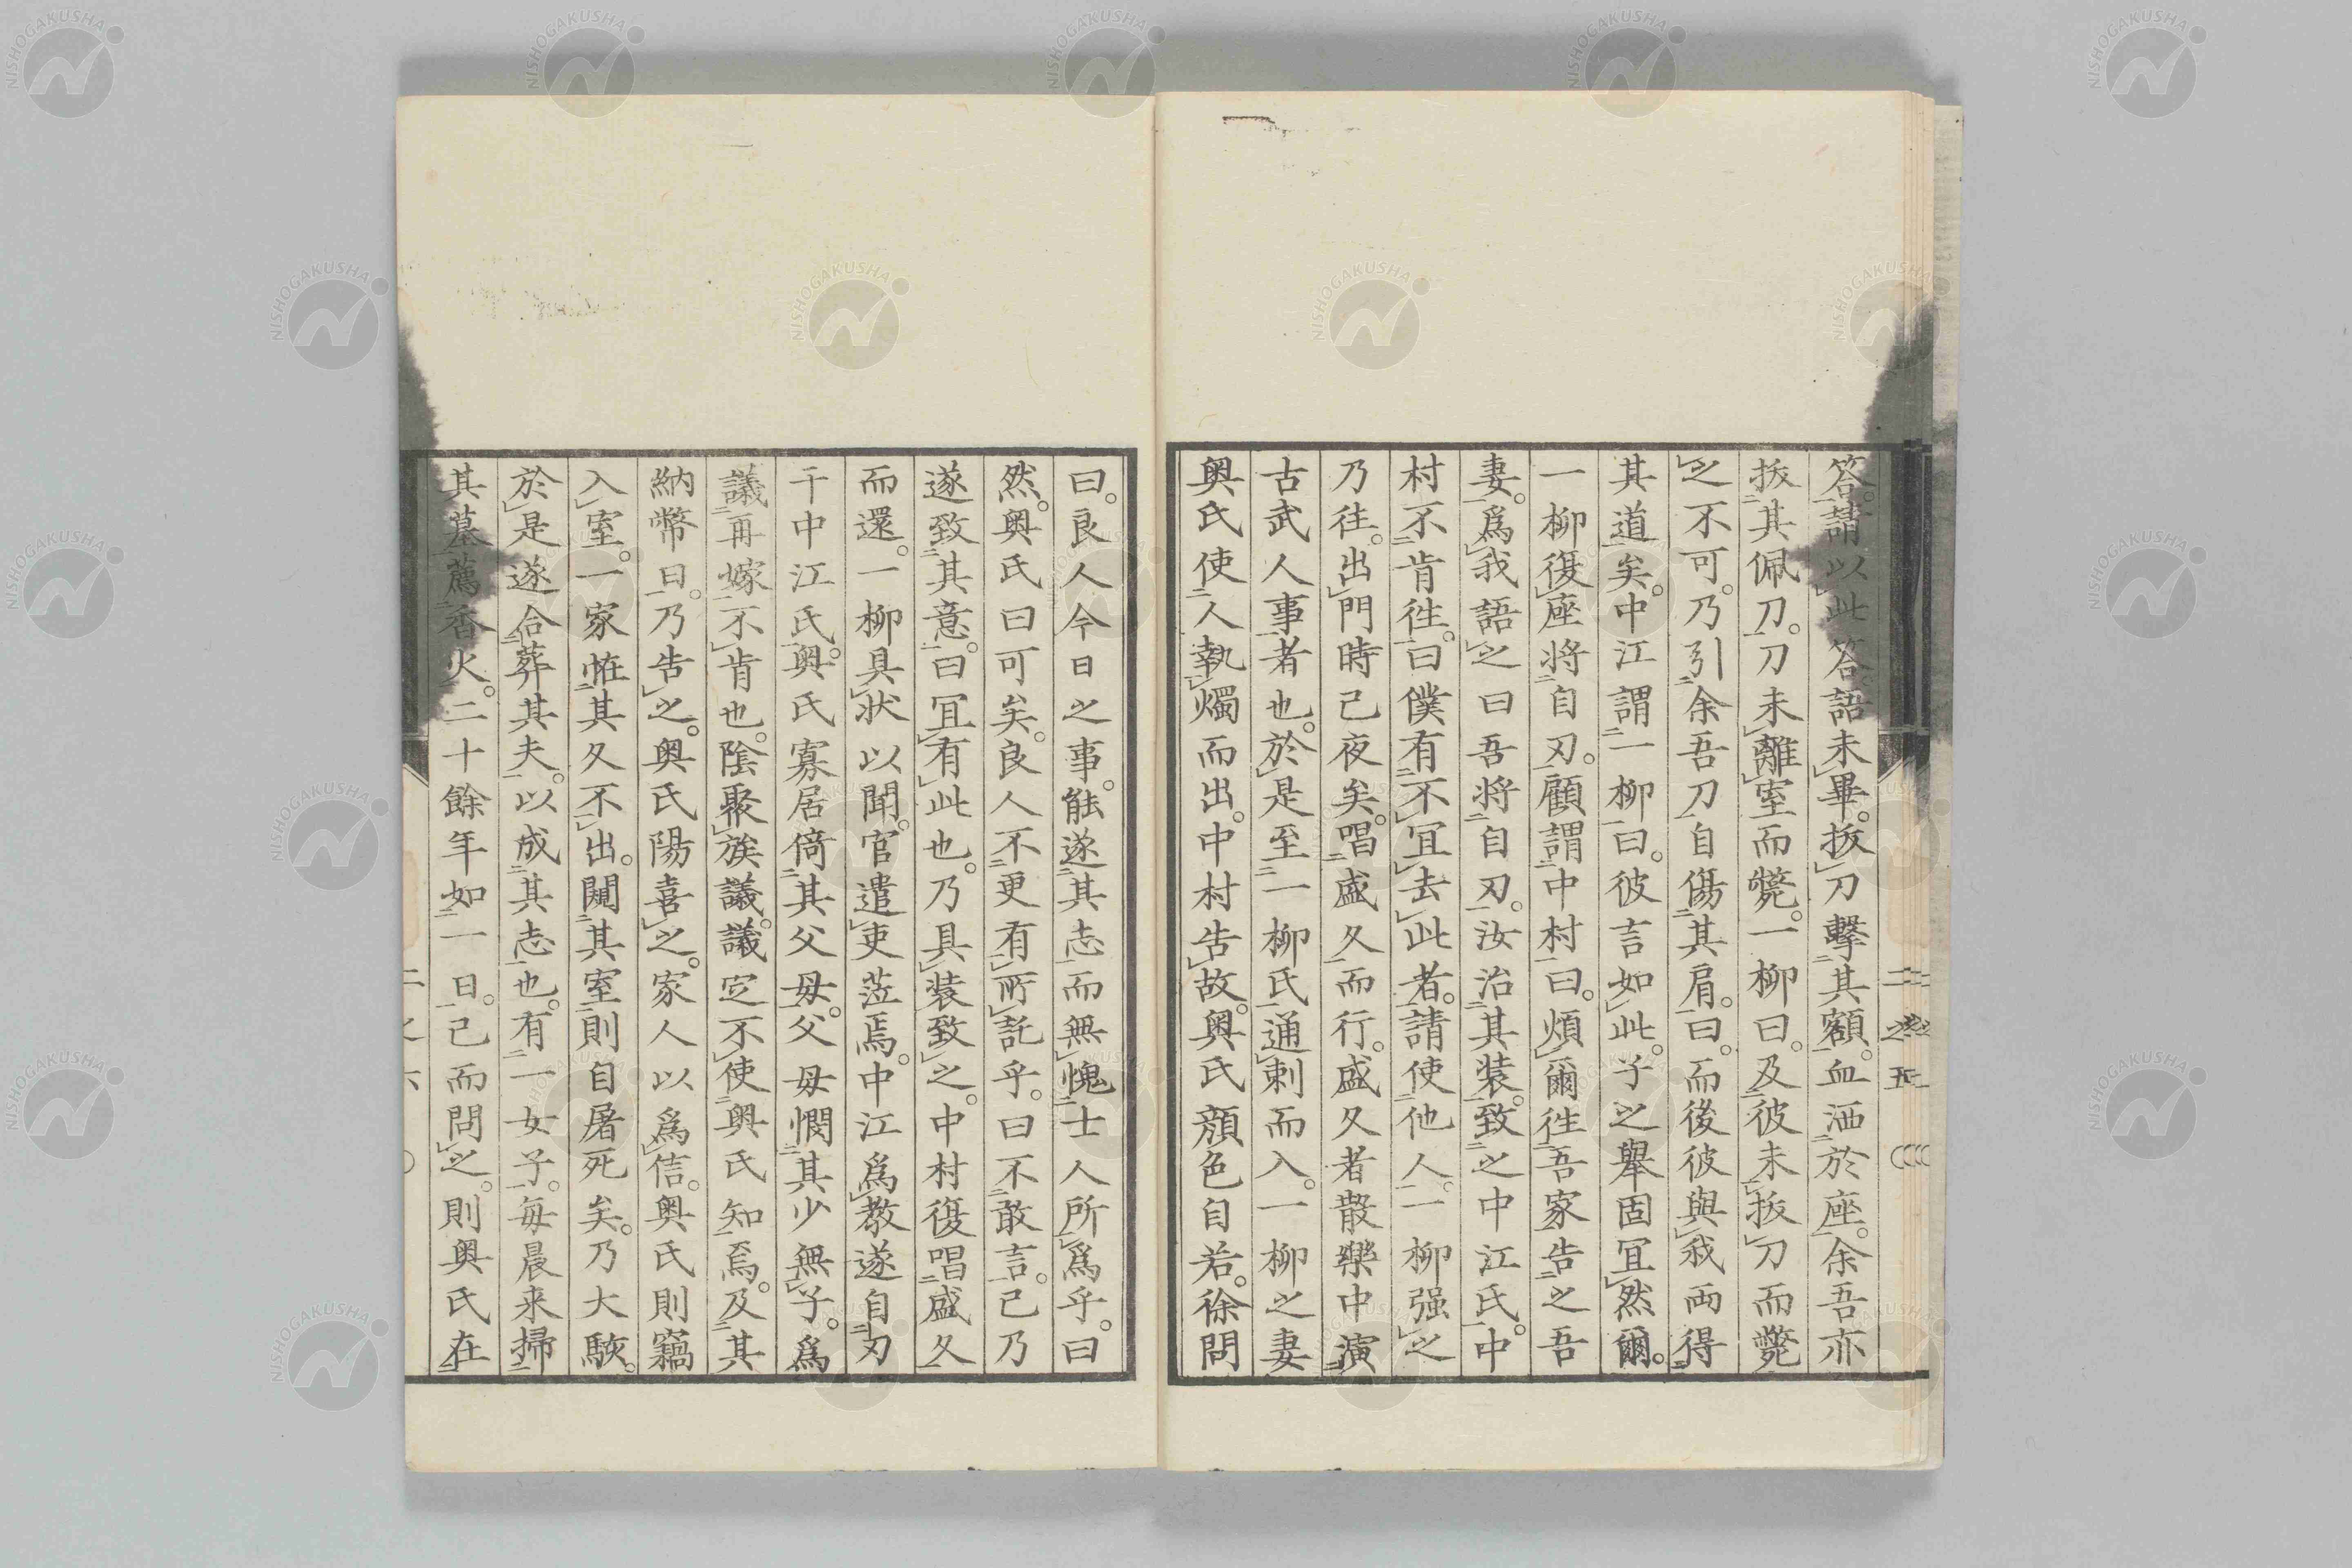 答。請以此答。語未畢。拔刀擊其額。血洒於座。余吾亦
拔其佩刀。刀未離室而斃。一柳曰。及彼未拔刀而斃
之不可。乃引余吾刀自傷其肩。曰。而後彼與我兩得
其道矣。中江謂一柳曰。彼言如此。子之舉固冝然爾。
一柳復座將自刃。顧謂中村曰。煩爾徃吾家告之吾
妻。爲我語之曰吾將自刃。汝治其装。致之中江氏。中
村不肯徃。曰僕有不冝去此者。請使他人。一柳强之
乃徃。出門時已夜矣。唱盛久而行。盛久者散樂中演
古武人事者也。於是至一柳氏通刺而入。一柳之妻
奥氏使人執燭而出。中村告故。奥氏顔色自若。徐問
曰。良人今日之事。能遂其志而無愧士人所爲乎。曰
然。奥氏曰可矣。良人不更有所託乎。曰不敢言。已乃
遂致其意。曰冝有此也。乃具装致之。中村復唱盛久
而還。一柳具狀以聞。官遣吏莅焉。中江爲教遂自刃
于中江氏。奥氏寡居倚其父母。父母憫其少無子。爲
議再嫁不肯也。陰聚族議。議定不使奥氏知焉。及其
納幣日。乃告之。奥氏陽喜之。家人以爲信。奥氏則竊
入室。一家恠其久不出。闚其室則自屠死矣。乃大駭。
於是遂合葬其夫。以成其志也。有一女子。毎晨来掃
其墓薦香火。二十餘年如一日。已而問之。則奥氏在
二之五
二之六